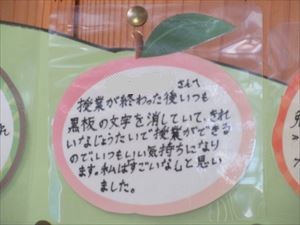 さんへ
授業が終わった後いつも
黒板の文字を消していて、きれ
いなじょうたいで授業ができる
ので、いつもいい気持ちになり
ます。私はすごいなしと思い
ました。